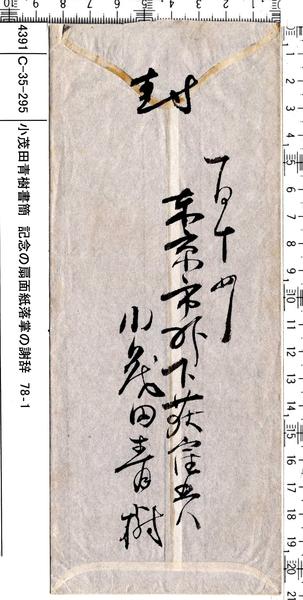 封
一月十四日
東京市外下荻窪五八
小茂田青樹
4391 C-35-295 小茂田青樹書簡 記念の扇面紙落掌の謝辞 78-1